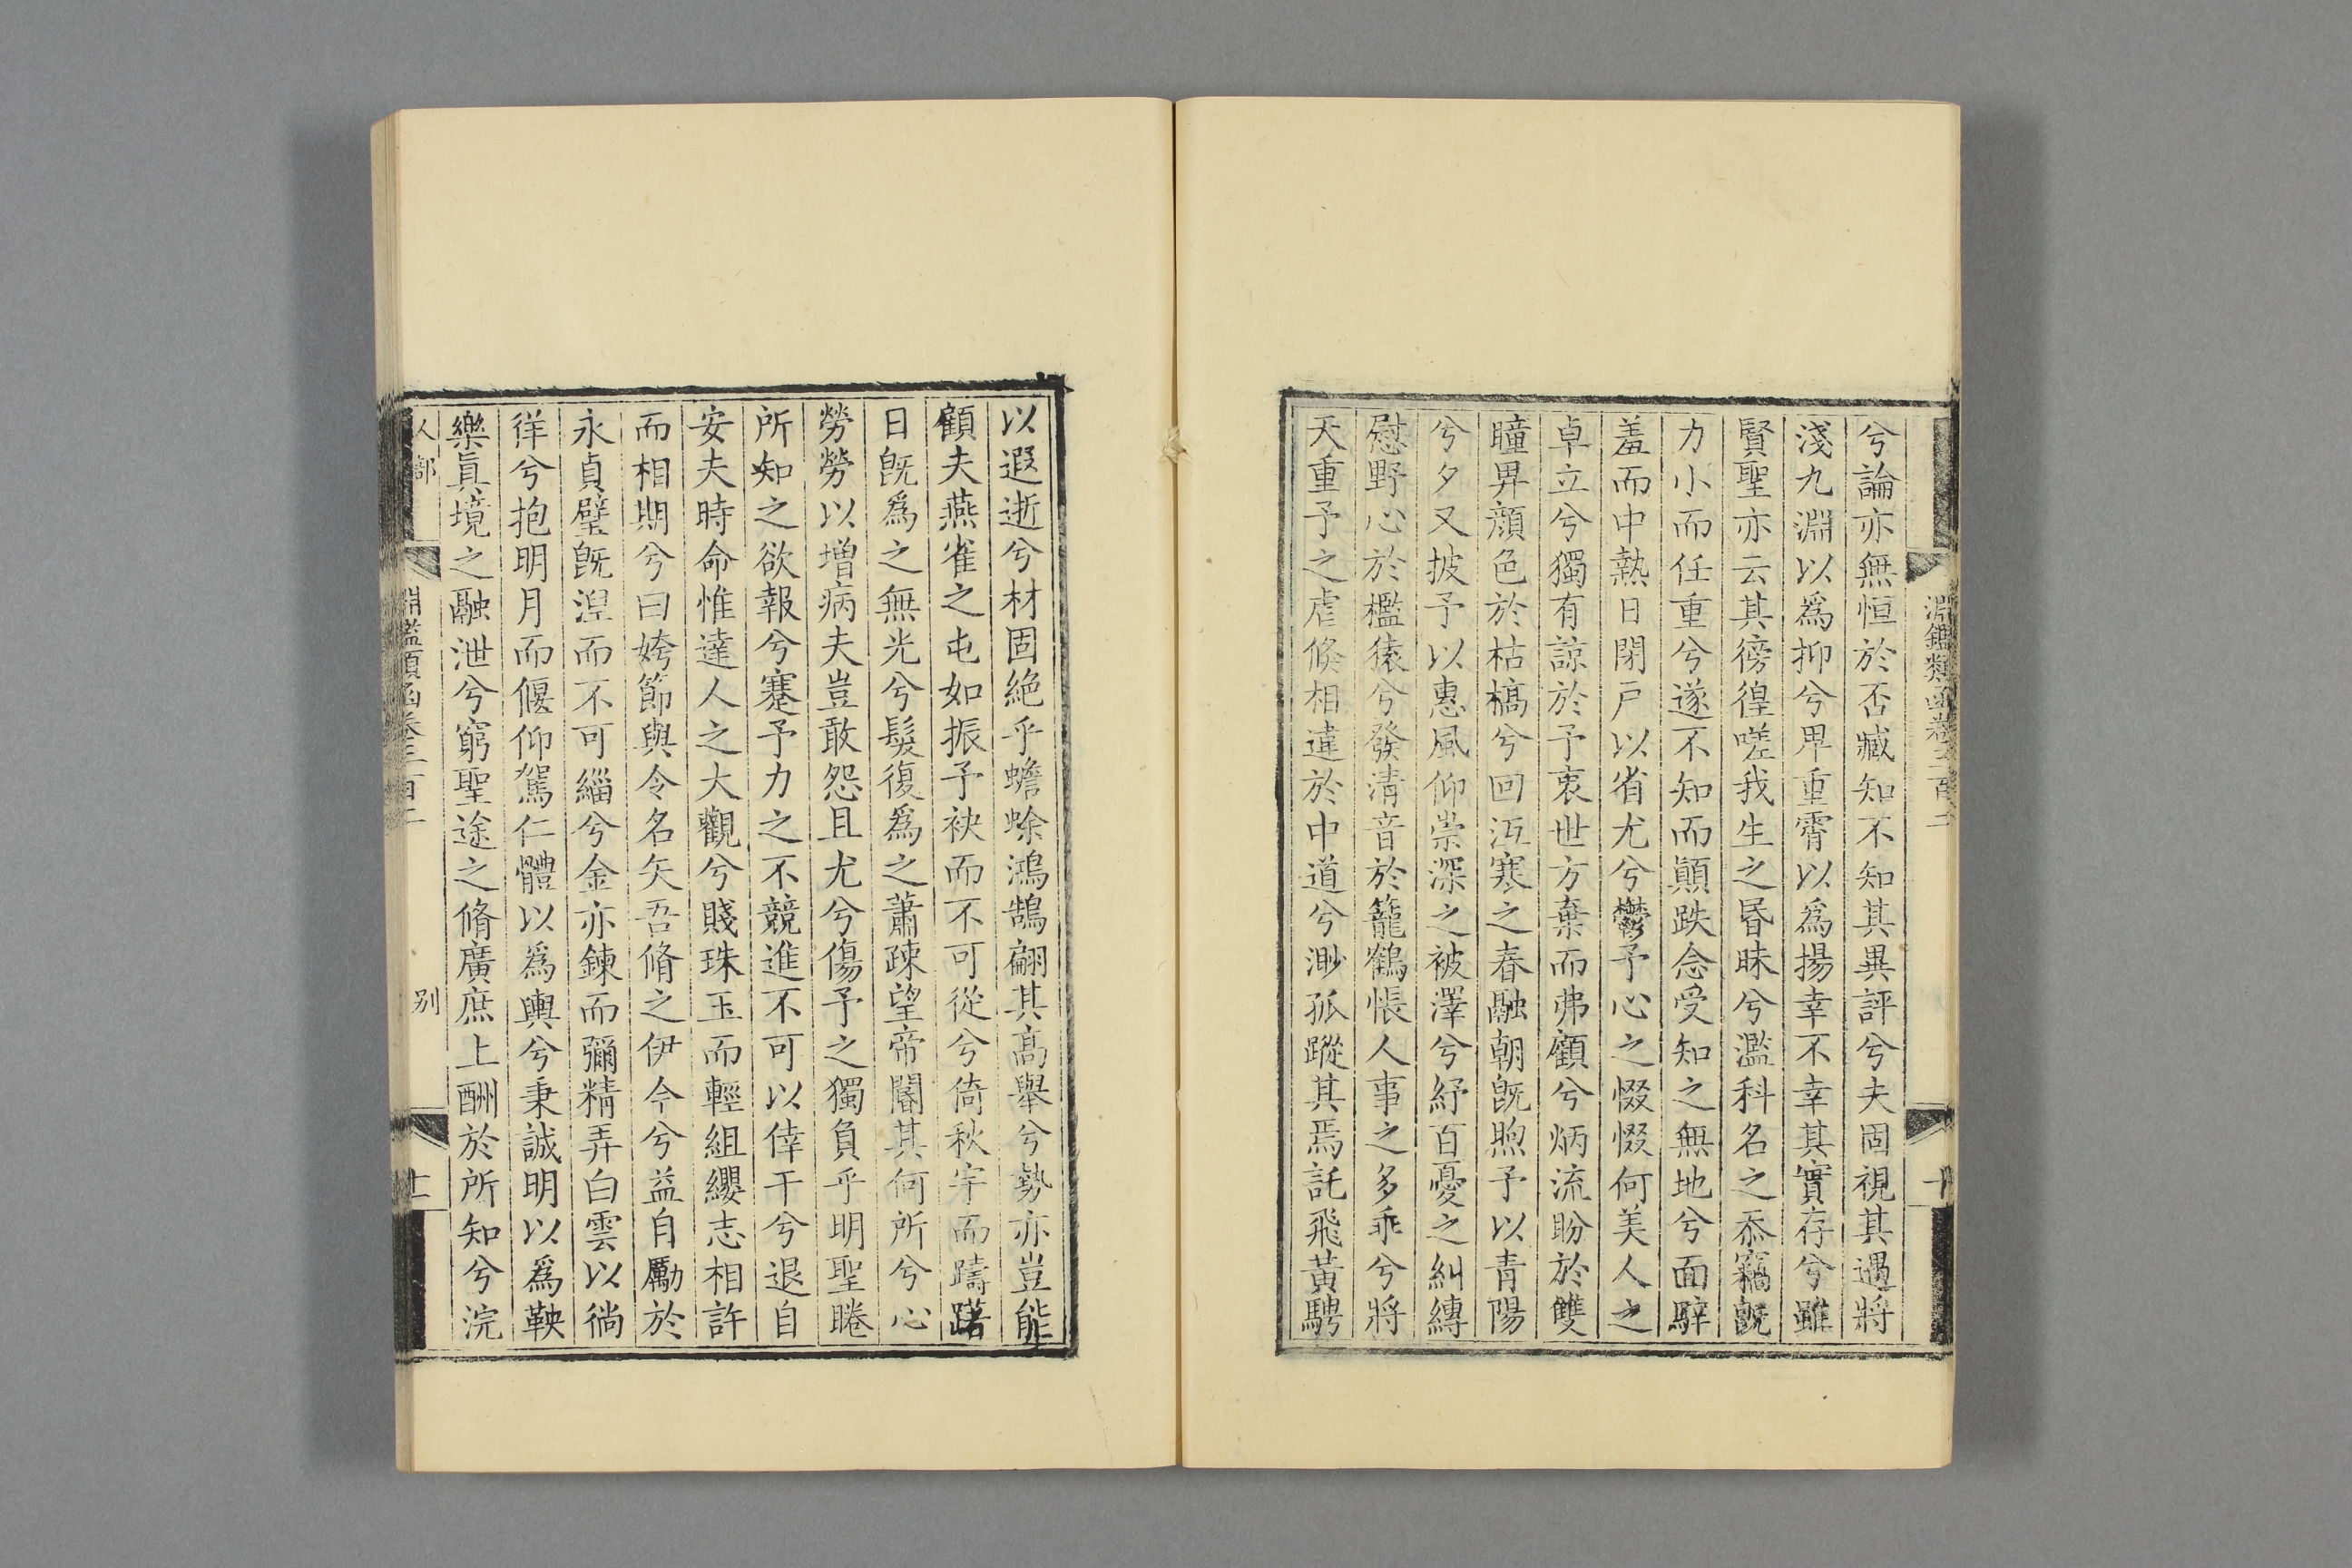 淵鑑類函卷三百二
十
兮論亦無恒於否臧知不知其異評兮夫固視其遇將
淺九淵以爲抑兮甼重霄以爲揚幸不幸其實存兮雖
賢聖亦云其徬徨嗟我生之昬昧兮濫科名之忝竊旣
力小而任重兮遂不知而顚跌念受知之無地兮面騂
羞而中熱日閉戸以省尤兮鬱予心之惙惙何美人之
卓立兮獨有諒於予衷世方棄而弗顧兮炳流盼於雙
瞳畀顔色於枯槁兮回沍寒之春融朝旣煦予以青陽
兮夕又披予以惠風仰崇深之被澤兮紓百憂之糾縳
慰野心於檻猿兮發清音於籠鶴悵人事之多乖兮將
天重予之虐倏相違於中道兮渺孤蹤其焉託飛黃騁
以遐逝兮材固絶乎蟾蜍鴻鵠翩其高舉兮勢亦豈能
顧夫燕雀之屯如振予袂而不可從兮倚秋宇而躊躇
日旣爲之無光兮髮復爲之蕭疎望帝閽其何所兮心
勞勞以增病夫豈敢怨且尤兮傷予之獨負乎明聖睠
所知之欲報兮蹇予力之不競進不可以倖干兮退自
安夫時命惟達人之大觀兮賤珠玉而輕組纓志相許
而相期兮曰姱節與令名矢吾脩之伊今兮益自勵於
永貞璧旣湼而不可緇兮金亦鍊而彌精弄白雲以徜
徉兮抱明月而偃仰駕仁體以爲輿兮秉誠明以爲鞅
樂眞境之融泄兮窮聖途之脩廣庶上酬於所知兮浣
人部
淵鑑類函卷三百二
别
十一